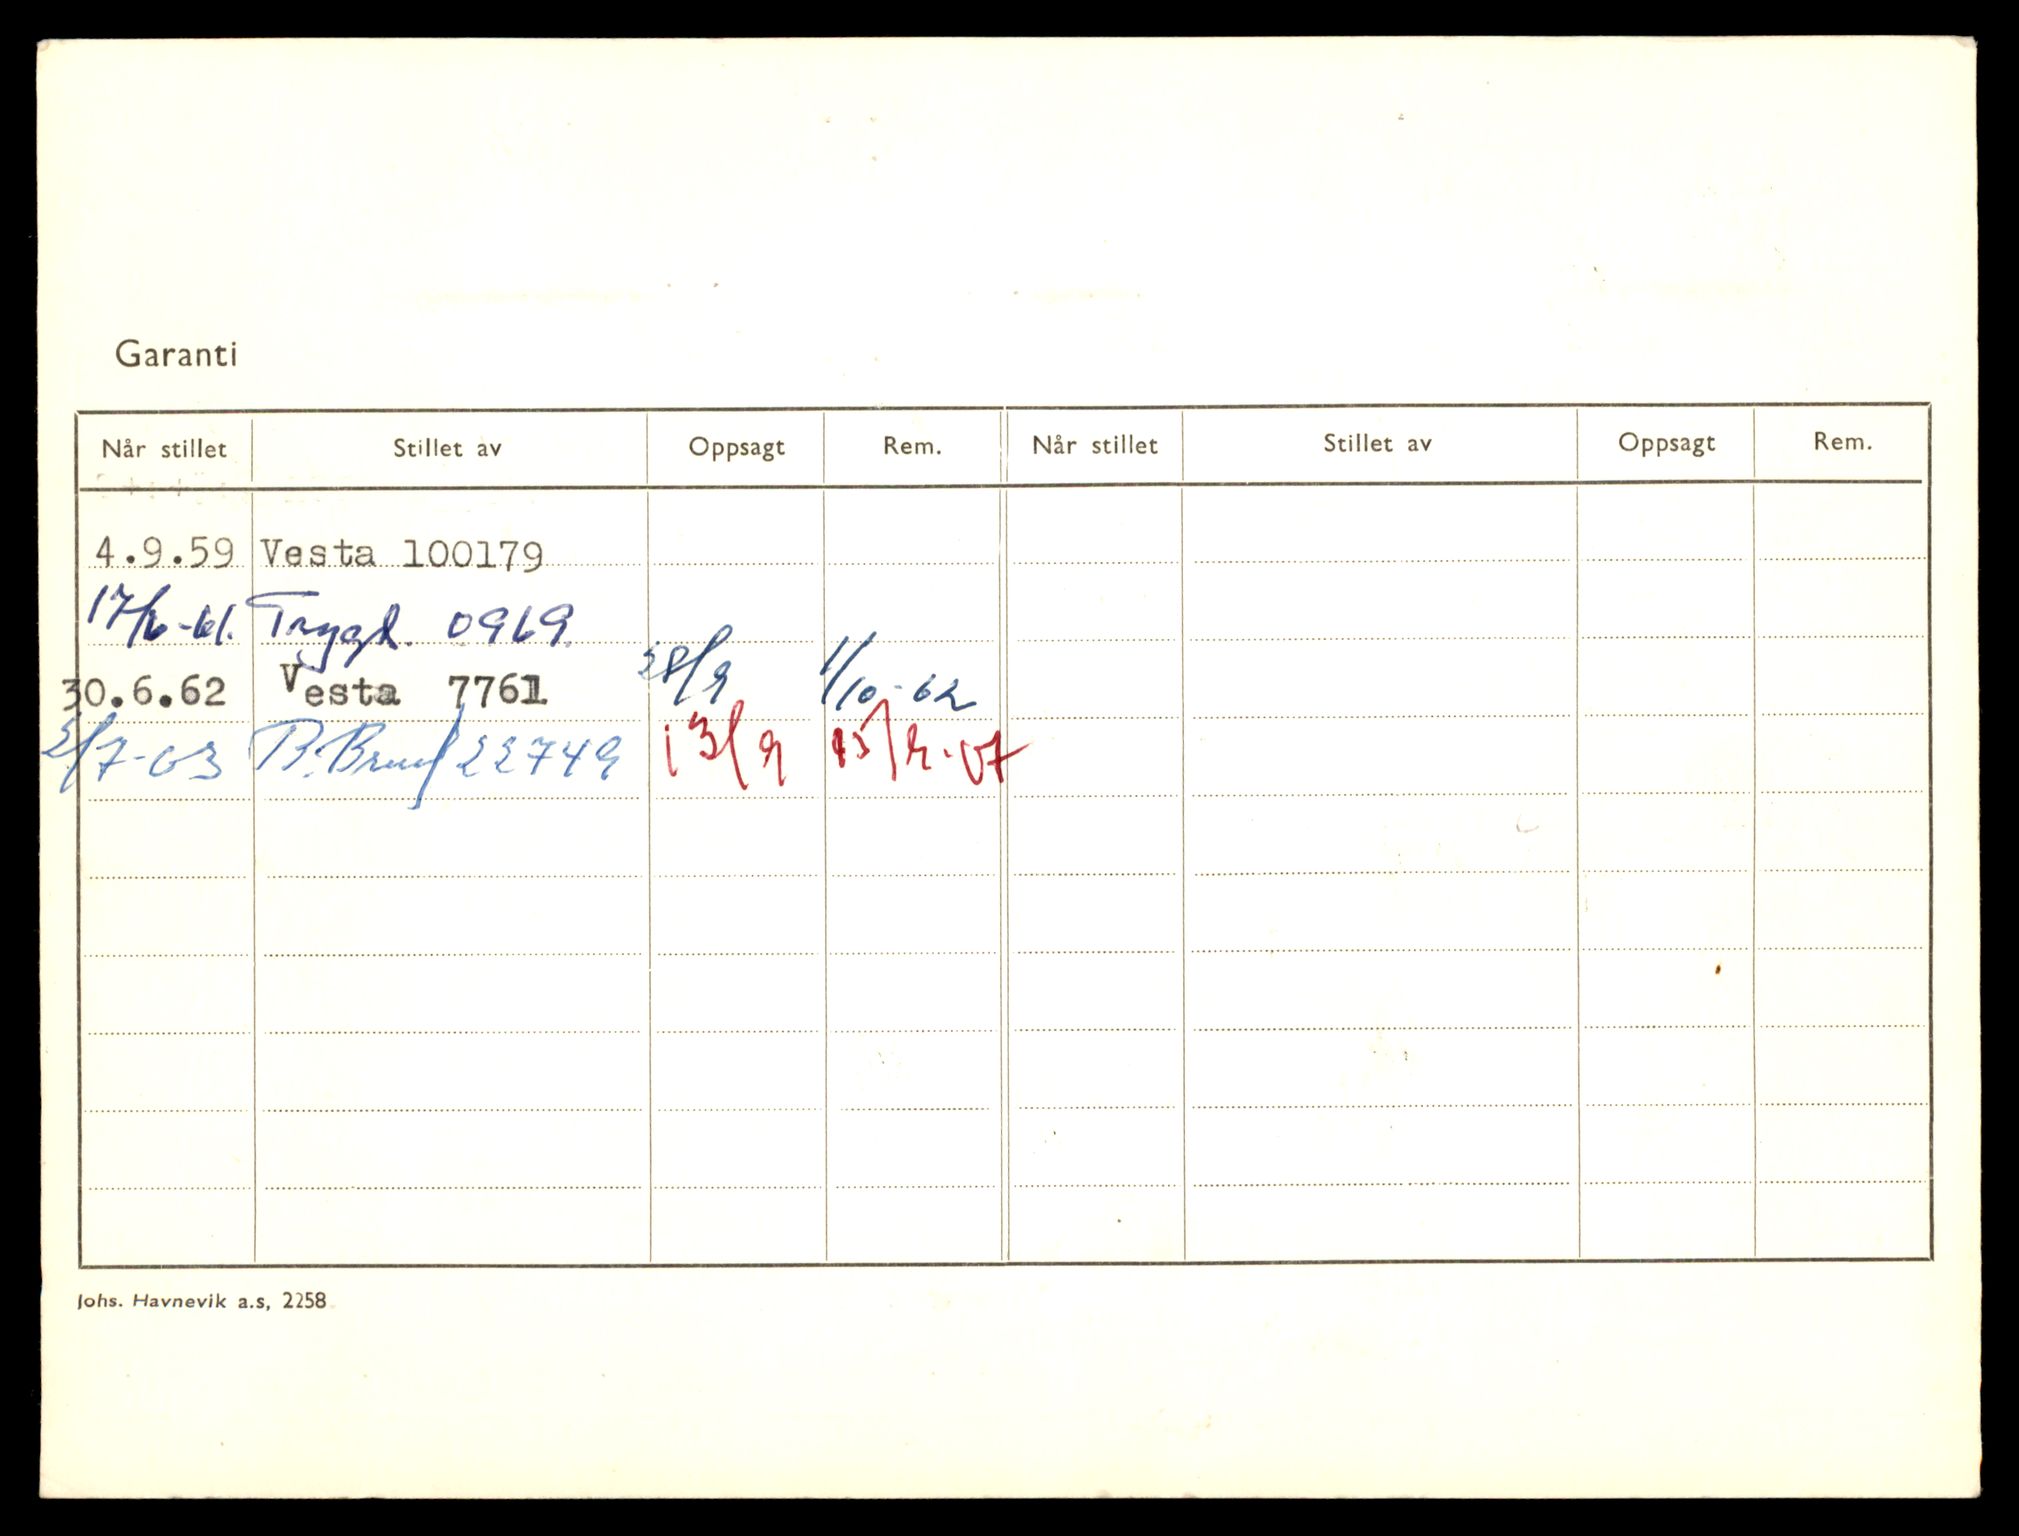 Garanti
Når stillet Stillet av Oppsagt Rem. Når stillet Stillet av Oppsagt Rem.
4.9.59 Vesta 100179
17/6-61. Trygd. 0969.
30.6.62 Vesta 7761 28/9 1/10-62
2/7-63 B. Brand 22749 13/9 15/9-67
Johs. Havnevik a.s, 2258